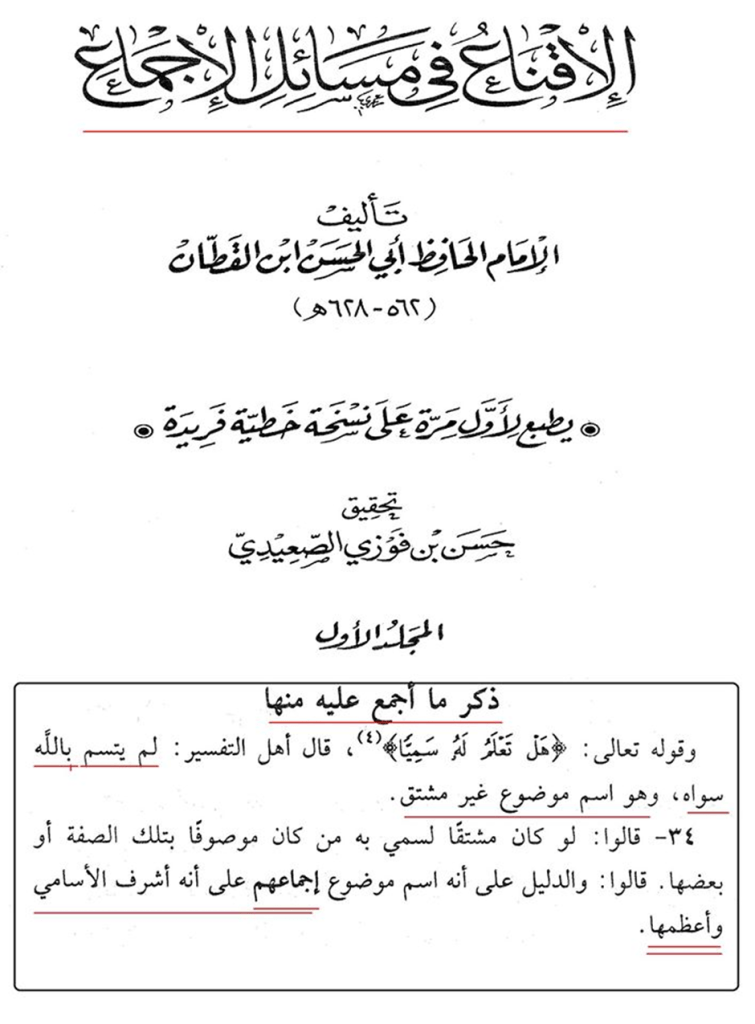 الإِقْنَاعُ فِي مَسَائِلِ الإِجْمَاعِ
تَأليفُ
الإمَام الحَافِظ أبي الحَسَنْ ابن القَطّان
(٥٦٢ - ٦٢٨هـ)
يطبع لأَوَّل مَرّة عَلَى نسْخَة خَطيّة فَريدَة
تحقيق
حَسَن بْن فَوْزي الصّعِيْديّ
المجَلد الأول
ذكر ما أجمع عليه منها
وقوله تعالى: ﴿هَلْ تَعْلَمُ لَهُ سَمِيًّا﴾(٤)، قال أهل التفسير: لم يتسم بالله
سواه، وهو اسم موضوع غير مشتق.
٣٤- قالوا: لو كان مشتقًا لسمي به من كان موصوفًا بتلك الصفة أو
بعضها. قالوا: والدليل على أنه اسم موضوع إجماعهم على أنه أشرف الأسامي
وأعظمها.